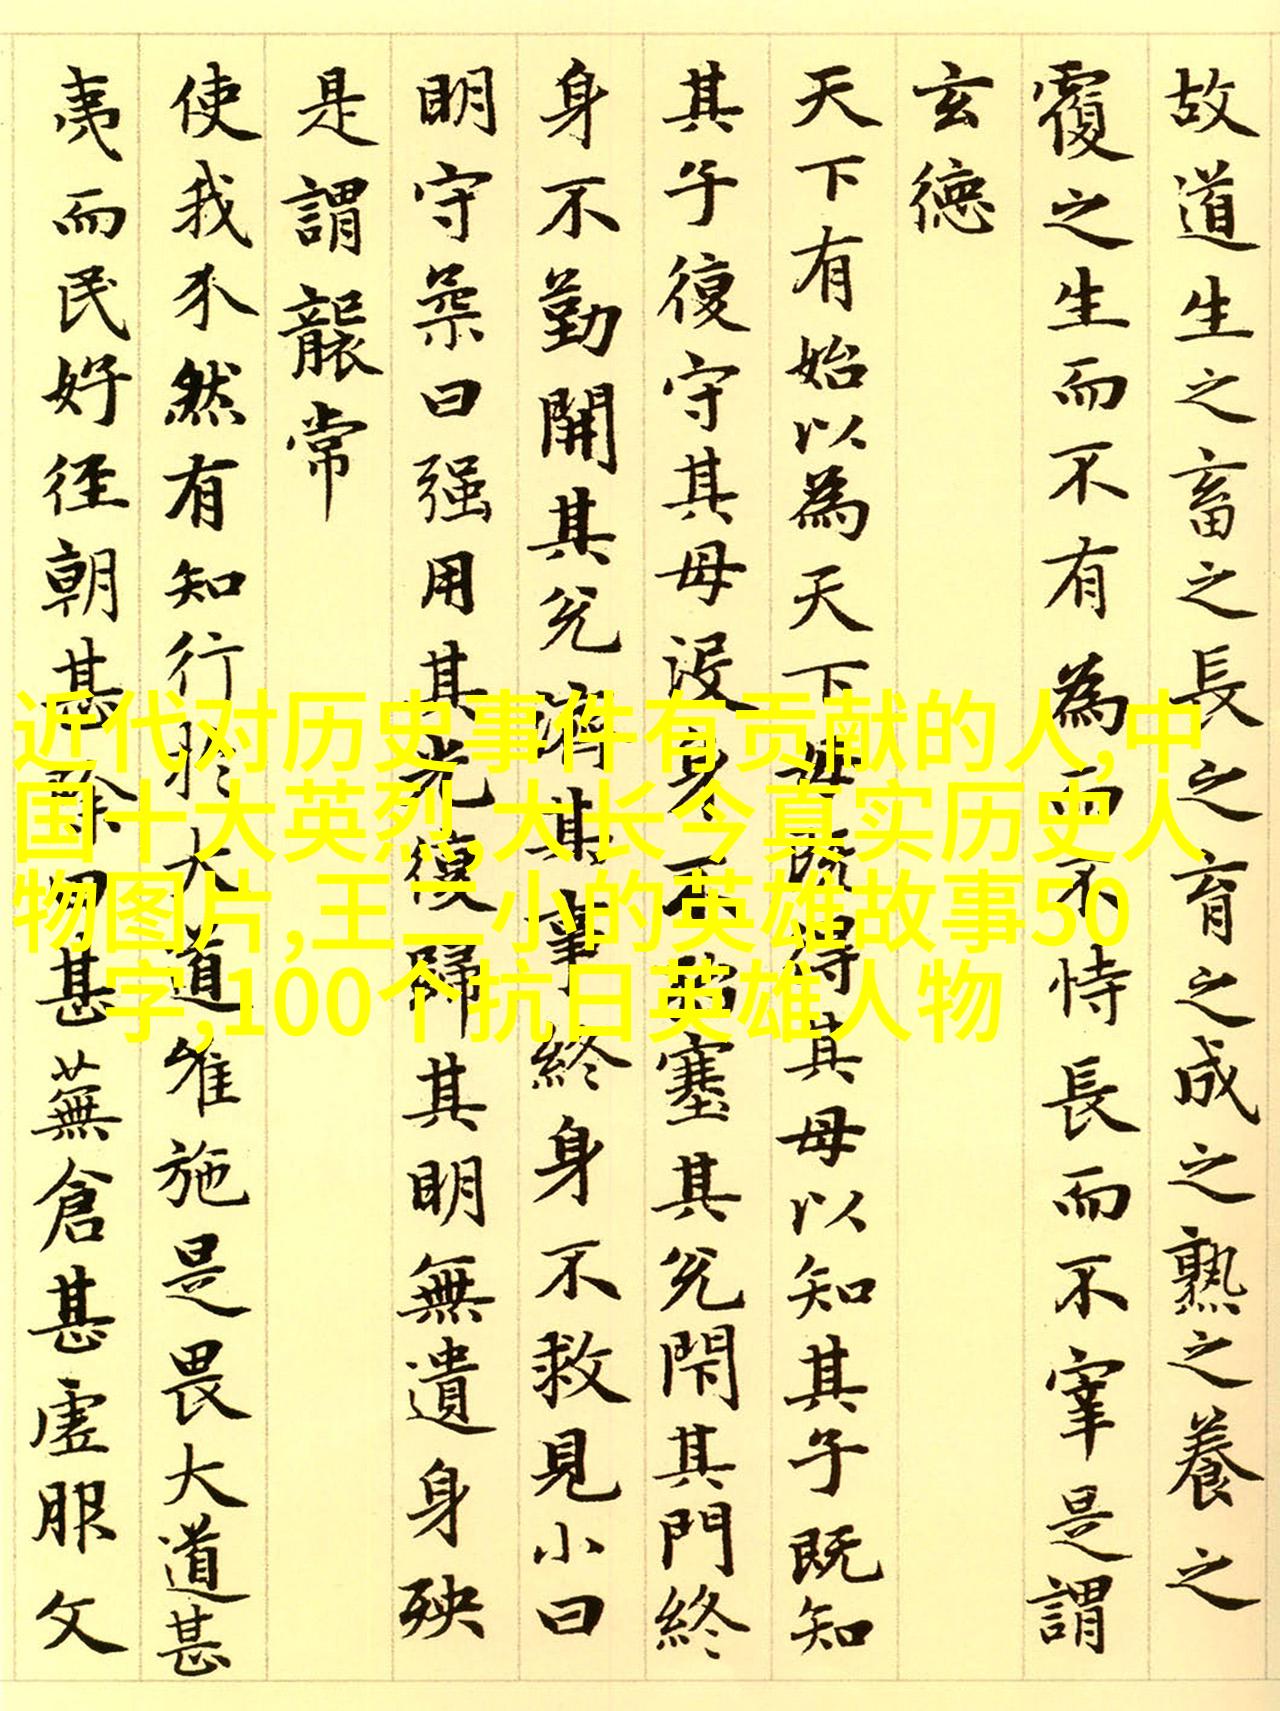 故道生之畜之長之育之成之熟之養之
覆之生而不有為而不恃長而不宰是謂
玄德
天下有始以為天下母既得其母以知其子既知
其子復守其母沒身不殆塞其兊閇其門終
身不勤開其兊濟其事終身不救見小曰
明守柔曰强用其光復歸其明無遺身殃
是謂襲常
使我介然有知行於大道唯施是畏大道甚
夷而民好徑朝甚除田甚蕪倉甚虛服文
近代对历史事件有贡献的人,中
国十大英烈,大长今真实历史人
物图片,王二小的英雄故事50
字,100个抗日英雄人物